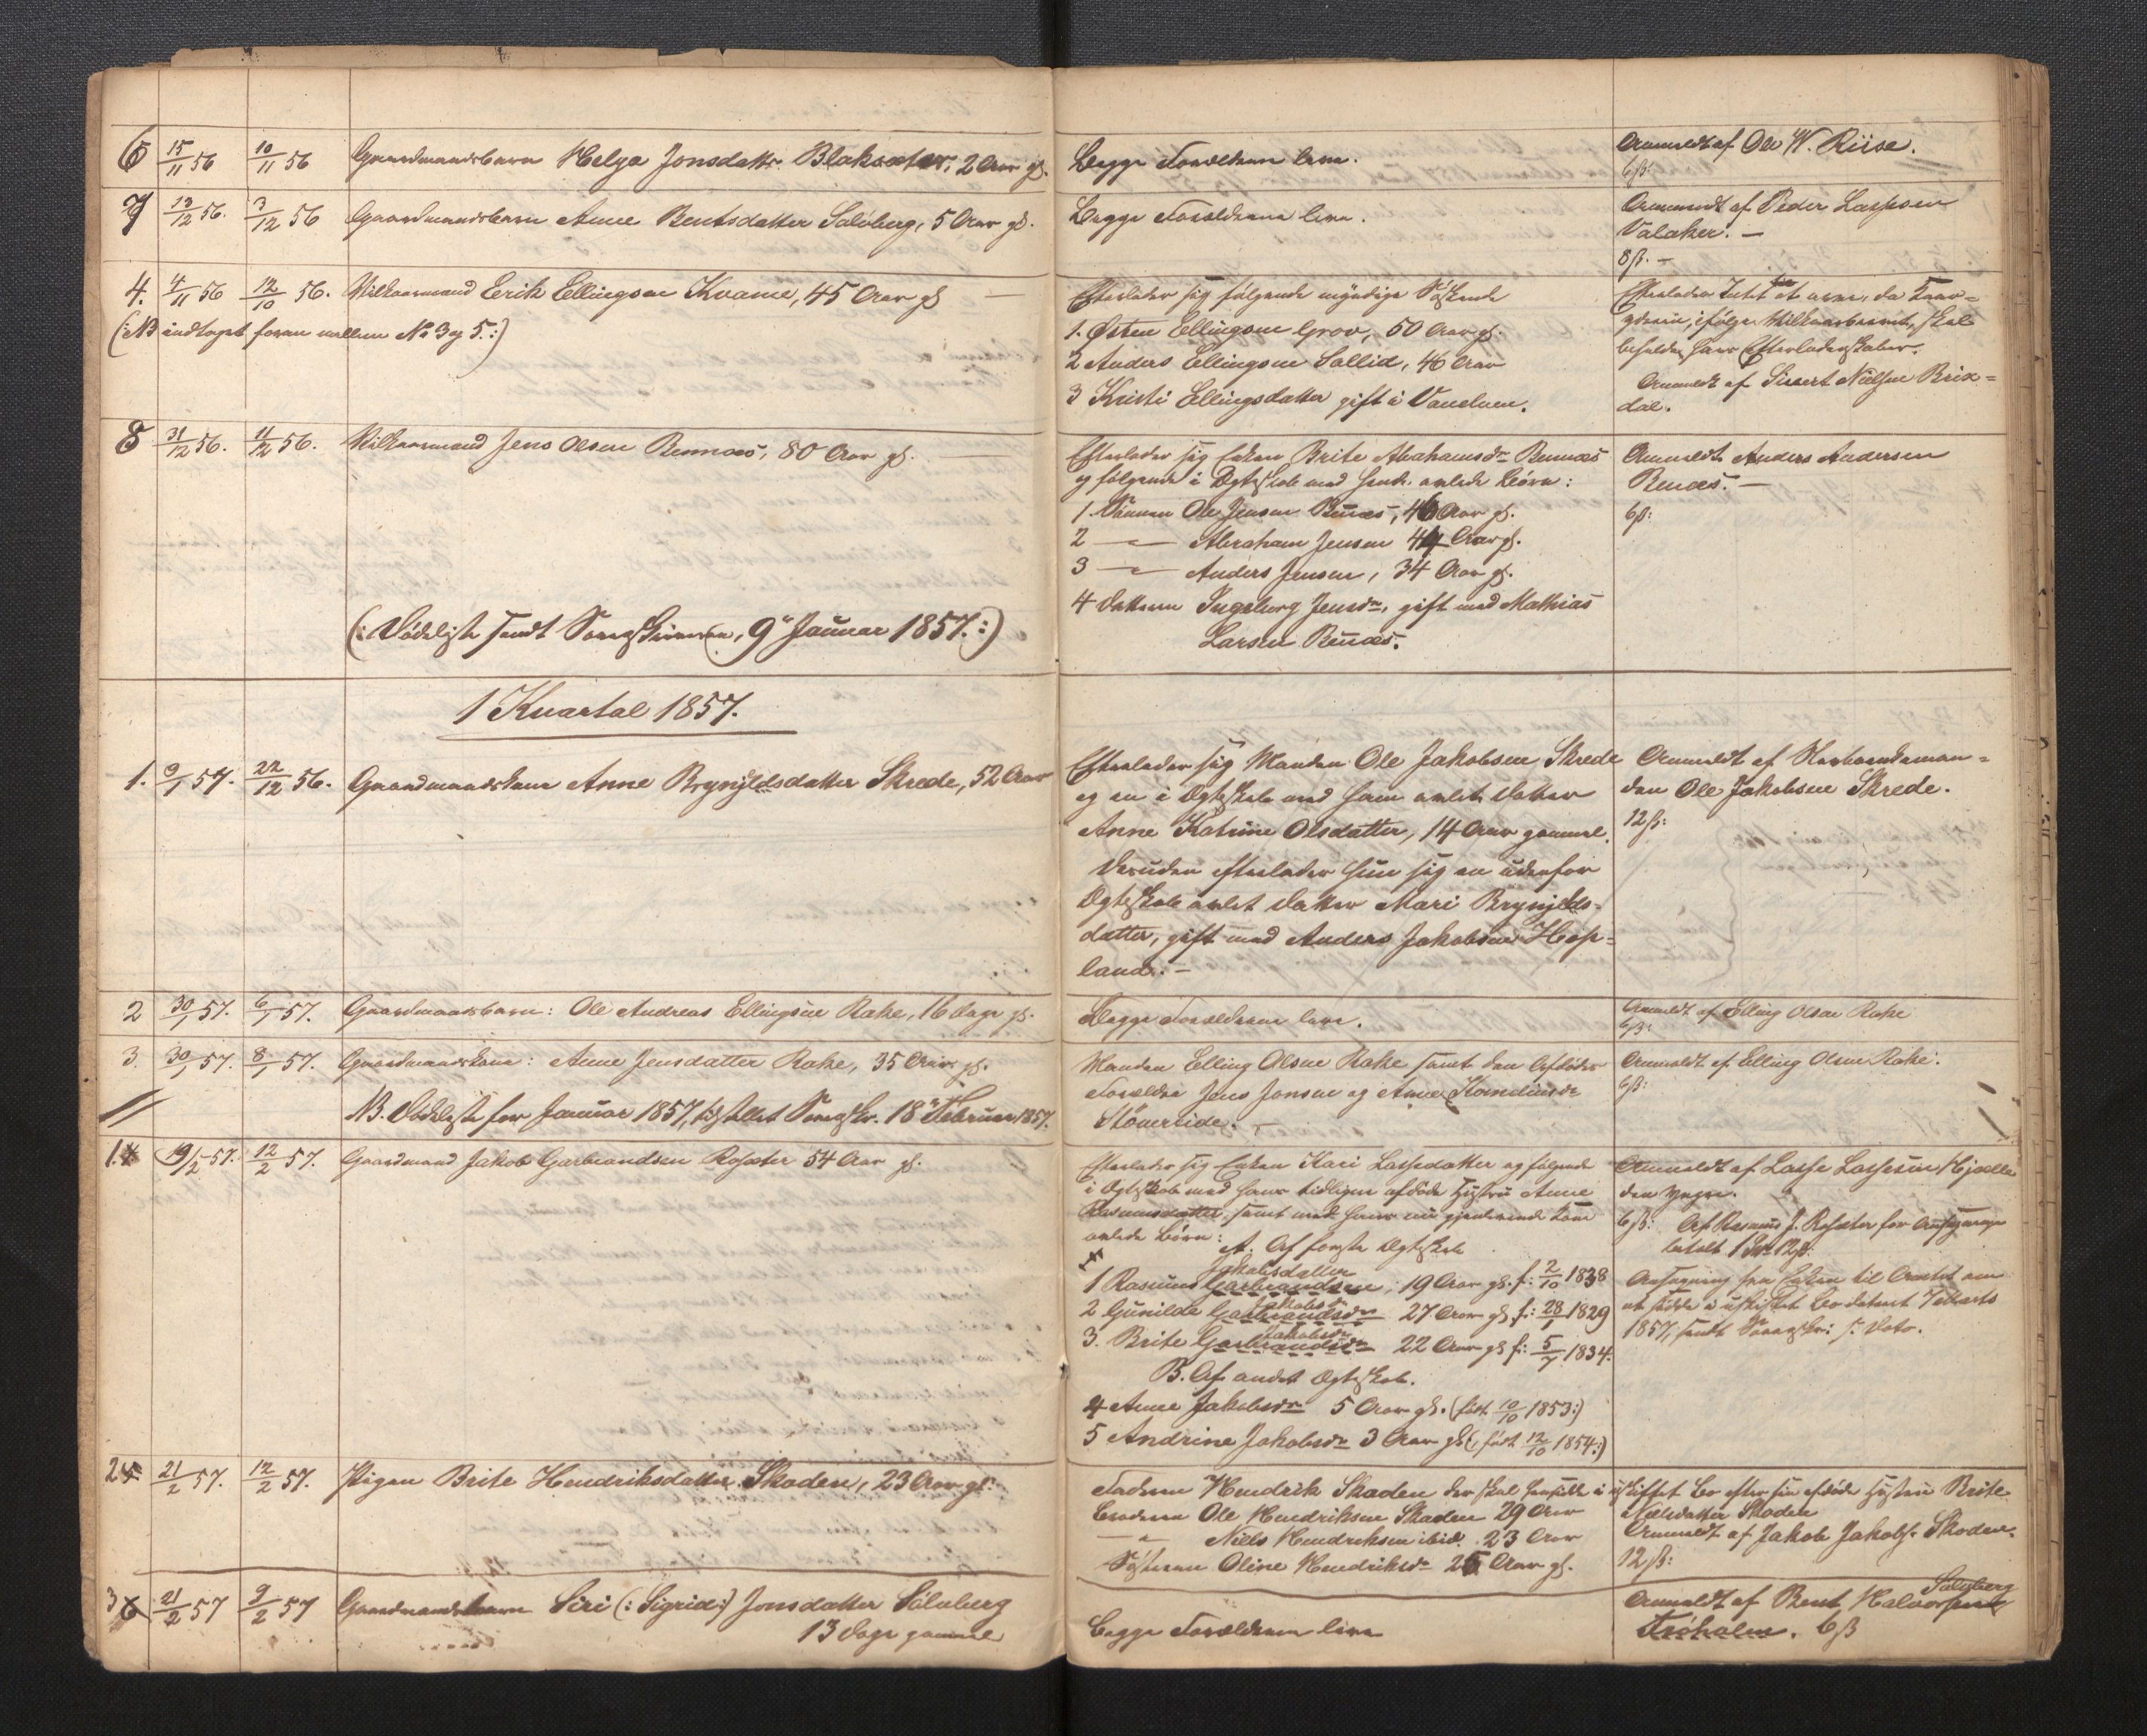 6 15/11 56 10/11 56 Gaardmandsbarn Helga Jonsdattr. Blaksæter, 2 Aar gl.
Begge Forældrene leve.
Anmeldt af Ole W. Riise.
6 ß:
7 13/12 56. 3/12 56 Gaardmandsbarn Anne Bentsdatter Solvberg, 5 Aar gl.
Begge Forældrene leve.
Anmeldt af Peder Lassesen
Valaker. —
8 ß. —
4. 4/11 56 12/10 56. Vilkaarsmand Erik Ellingsen Kvame, 45 Aar gl —
(: NB indtaget foran mellem No 3 og 5. :)
Efterlader sig følgende myndige Søskende
1. Østen Ellingsen Grov, 50 Aar gl.
2 Anders Ellingsen Sollid, 46 Aar
3 Kristi Ellingsdatter gift i Vanelven.
Efterlader Intet at arve, da
ifølge Vilkaarsbrevet, skal
beholde hans Efterladenskaber.
Anmeldt af Sivert Nielsen Brix=
dal.
8 31/12 56. 11/12 56. Vilkaarsmand Jens Olsen Rennæs, 80 Aar gl. —
Efterlader sig Enken Brite Abrahamsdr Rennæs
og følgende i Ægteskab med hende avlede Børn:
1. Sønnen Ole Jensen Rennæs, 46 Aar gl.
2 — " — Abraham Jensen 44 Aar gl.
3 — " — Anders Jensen, 34 Aar gl.
4 Datteren Ingeborg Jensdr, gift med Mathias
Larsen Rennæs.
Anmeldt Anders Andersen
Renæs. —
6 ß:
(: Dødeliste sendt Sorenskriveren, 9de Januar 1857. :)
1 Kvartal 1857.
1. 9/1 57. 22/12 56. Gaardmandskone Anne Brynjldsdatter Skrede, 52 Aar
Efterlader sig Manden Ole Jakobsen Skrede
og en i Ægteskab med ham avlet Datter
Anne Katrine Olsdatter, 14 Aar gammel.
Desuden efterlader hun sig en udenfor
Ægteskab avlet Datter Mari Brynjlds-
datter, gift med Anders Jakobsen Hop=
land. —
Anmeldt af
den Ole Jakobsen Skrede.
12 ß:
2 30/1 57. 6/1 57. Gaardmandsbarn: Ole Andreas Ellingsen Rake, 16 Dage gl.
Begge Forældrene leve.
Anmeldt af Elling Olsen Rake
6 ß:
3. 30/1 57. 8/1 57. Gaardmandskone: Anne Jensdatter Rake, 35 Aar gl.
Manden Elling Olsen Rake samt den Afdødes
Forældre Jens Jonsen og Anne
Anmeldt af Elling Olsen Rake.
6 ß:
NB. Dødeliste for Januar 1857, tilstillet Sorenskr. 18de Februar 1857.
1. 4 19/2 57. 12/2 57. Gaardmand Jakob Garbrandsen Rosæter 54 Aar gl.
Efterlader sig Enken Kari Lassedatter og følgende
i Ægteskab med hans tidligere afdøde Hustru Anne
Rasmusdatter, samt med hans nu gjenlevende Kone
avlede Børn:
A. Af første Ægteskab
Jakobsdatter
1 Rasmus Garbrandsen, 19 Aar gl. f: 2/10 1838
Jakobsdr
2 Gunilde Garbrandsdr 27 Aar gl. f: 28/1 1829
Jakobsdr
3. Brite Garbrandsdr 22 Aar gl f: 5/7 1834.
B. Af andet Ægteskab.
4 Anne Jakobsdr 5 Aar gl. (født 10/10 1853 :)
5 Andrine Jakobsdr 3 Aar gl (: født 12/10 1854. :)
Anmeldt af Lasse Lassesen Hjælle
den yngre.
6 ß: Af Rasmus J. Rosæter for Ansøgningen
betalt 12 ß.
Ansøgning fra Enken til Amtet om
at sidde i uskiftet Bo dateret 7 Marts
1857, sendt Sorenskr: s. Dato.
2 5 21/2 57. 12/2 57. Pigen Brite Hendriksdatter Skaden, 23 Aar gl:
Faderen Hendrik Skaden der skal hensidde i uskiftet Bo efter sin afdøde Hustru Brite
Nielsdatter Skaden
Broderen Ole Hendriksen Skaden 29 Aar
— " — Niels Hendriksen ibid. 23 Aar
Søsteren Oline Hendriksdr 25 Aar gl.
Anmeldt af Jakob Jakobs. Skaden.
12 ß:
3 6 21/2 57 9/2 57 Gaardmandsbarn Siri (: Sigrid :) Jonsdatter Sólvberg
13 Dage gammel
Begge Forældrene leve
Anmeldt af Bent Halvorsen
Solvberg
6 ß